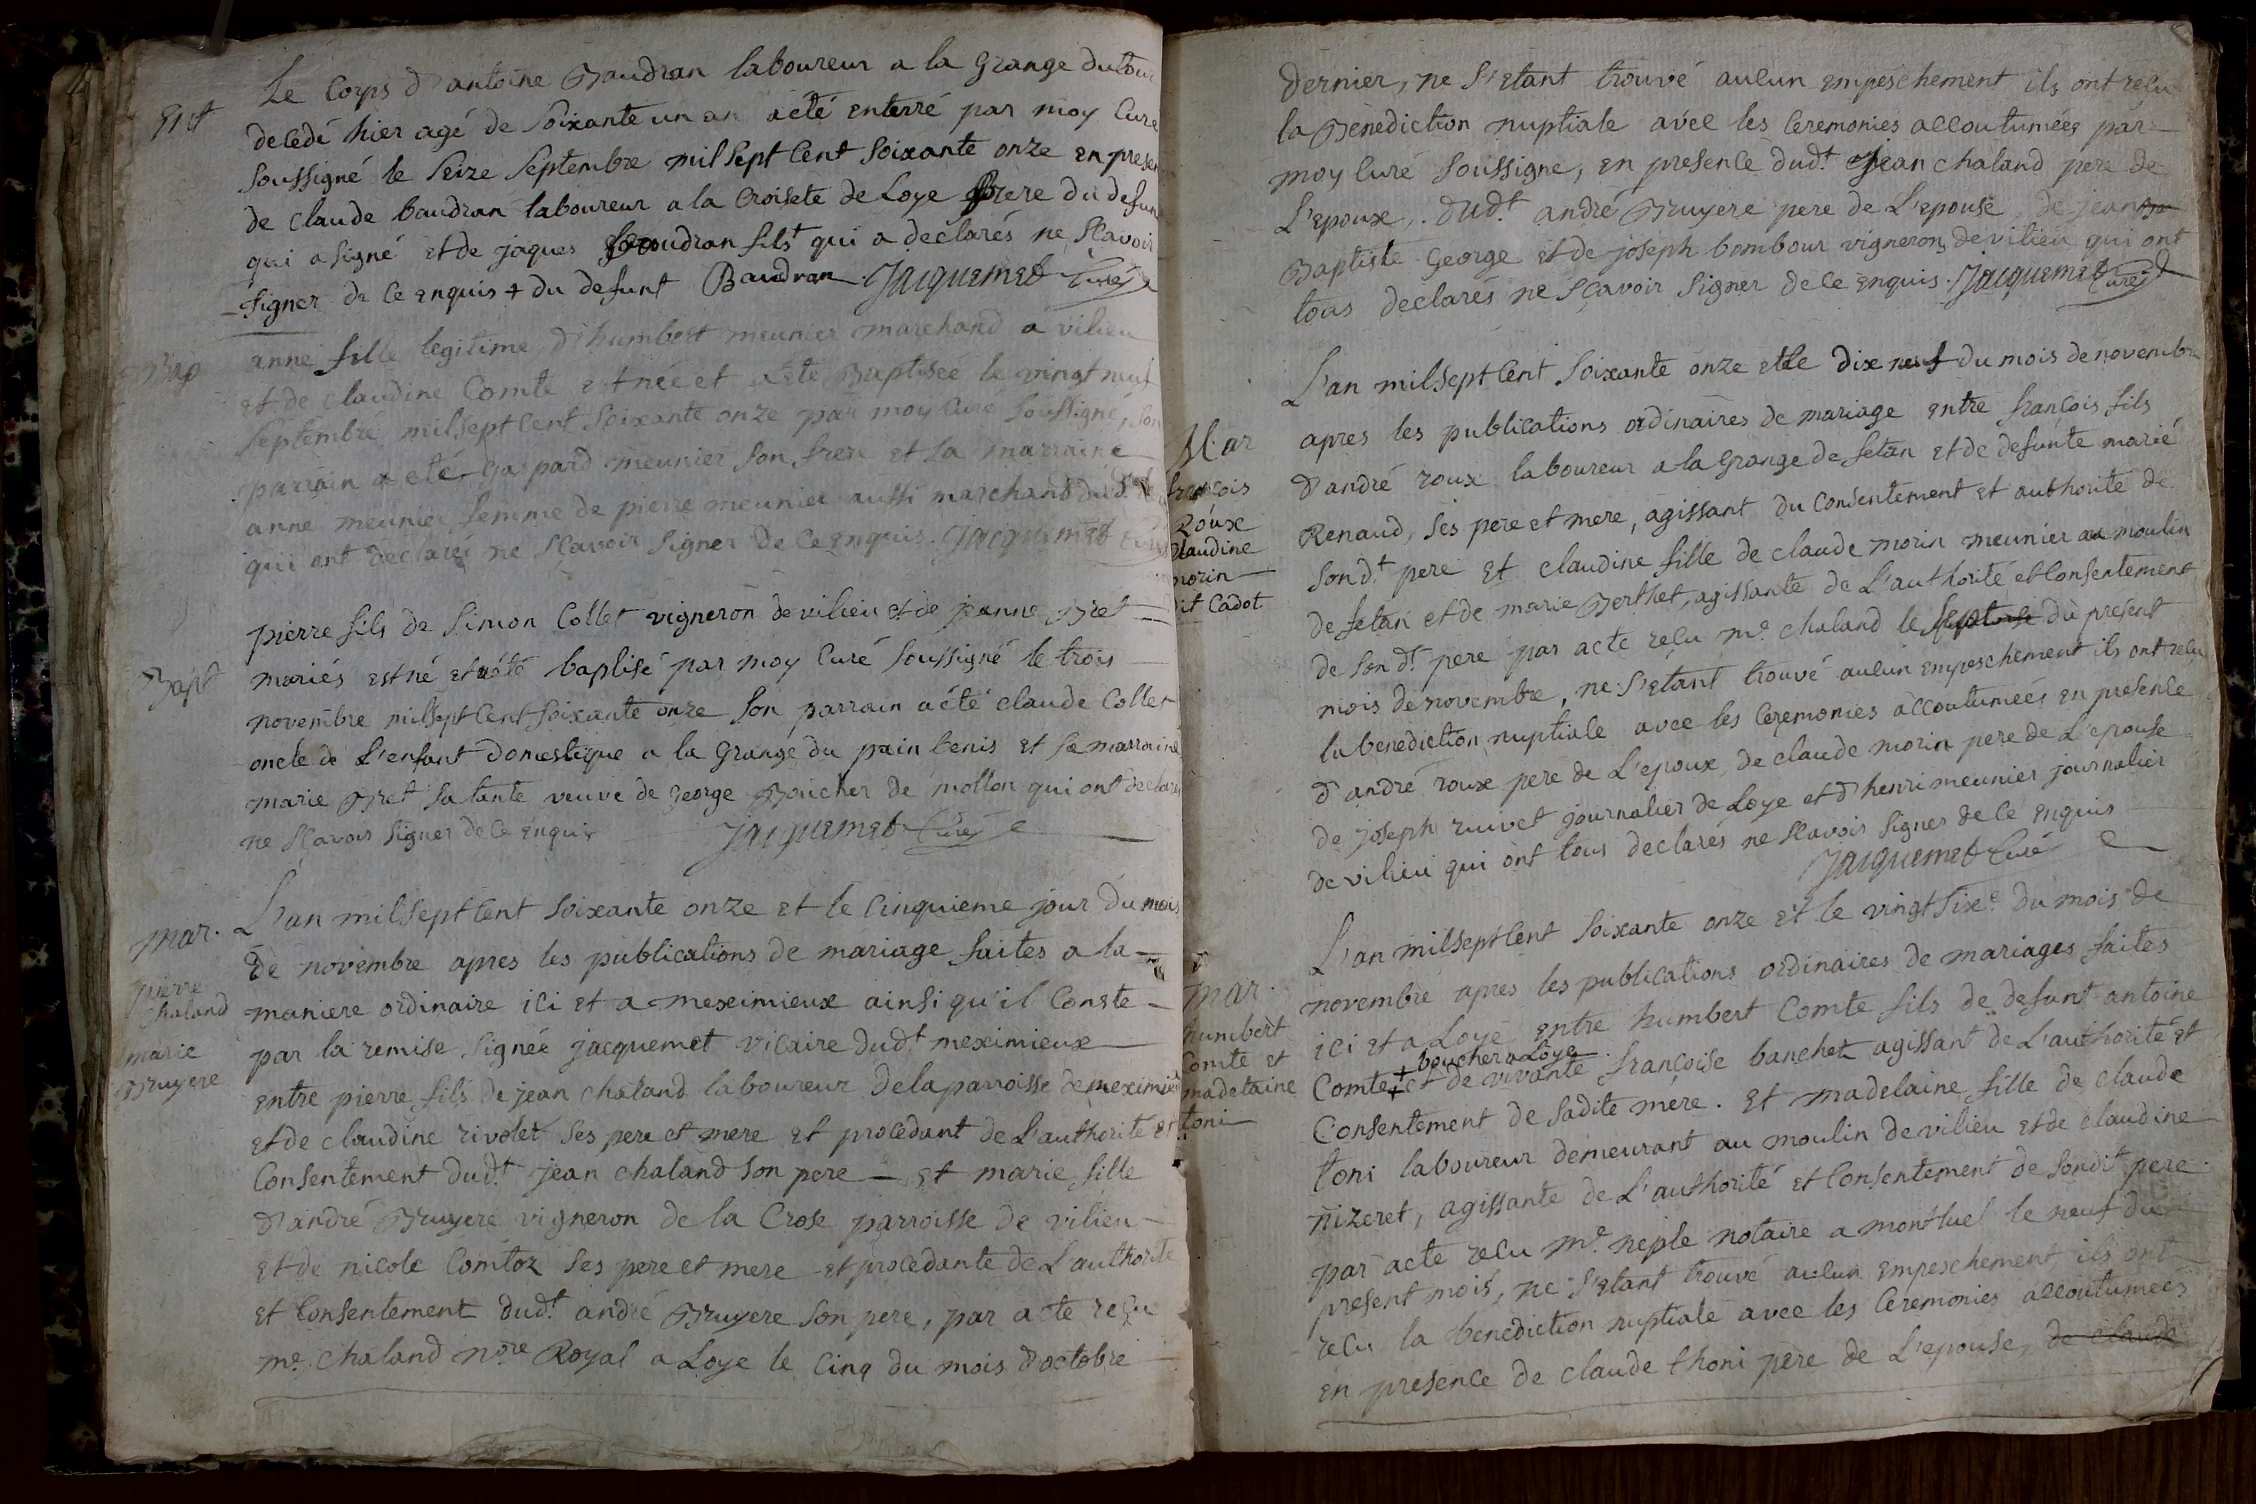 Ent
Le Corps d'antoine Baudran laboureur a la Grange dutour
decedé hier agé de Soixante un an a été enterré par moy Curé
soussigné le Seize Septembre mil sept cent soixante onze en presen
de claude baudran laboureur a la Croisete de Loye frere du defun
qui a signé et de jaques baudran fils+ qui a declarés ne sçavoir
signer de ce enquis + du defunt Baudran Jacquemet Curé
Bap
anne fille legitime d'humbert meunier marchand a vilieu
et de claudine Comte est née et a été Baptisée le vingt neuf
septembre mil sept cent soixante onze par moy curé soussigné, son
parrain a eté gaspard meunier son frere et la marraine
anne meunier femme de pierre meunier aussi marchand dud.
qui ont declarés ne sçavoir signer de ce enquis. Jacquemet Curé
Bapt
pierre fils de Simon Collet vigneron de vilieu et de jeanne Bret
mariés est né et a été baptisé par moy Curé soussigné le trois
novembre mil sept cent soixante onze son parrain a été claude Collet
oncle de L'enfant domestique a la Grange du pain benis et sa marraine
marie Bret sa tante veuve de George Boucher de mollon qui ont declarés
ne sçavoir signer de ce enquis Jacquemet Curé
mar.
pierre
chaland
marie
Bruyere
L'an mil sept cent soixante onze et le cinquieme jour du mois
de novembre apres les publications de mariage faites a la
maniere ordinaire ici et a meximieux ainsi qu'il Conste
par la remise signée jacquemet vicaire dud.t meximieux
entre pierre fils de jean chaland laboureur de la parroisse de meximieu
et de claudine rivolet ses pere et mere et procedant de L'authorité et
Consentement dud.t jean chaland son pere — et marie fille
d'andré Bruyere vigneron de la Crose parroisse de vilieu
et de nicole Comtoz ses pere et mere et procedante de L'authorité
et Consentement dud.t andré Bruyere son pere, par acte reçu
me. chaland nore Royal a Loye le cinq du mois d'octobre
dernier, ne s'etant trouvé aucun empeschement ils ont reçu
la Benediction nuptiale avec les Ceremonies accoutumées par
moy curé soussigné, en presence dud.t jean chaland pere de
L'epoux, dud.t andré Bruyere pere de L'epouse, de jean
Baptiste George et de joseph bombour vignerons de vilieu qui ont
tous declarés ne sçavoir signer de ce enquis. Jacquemet Curé
Mar
françois
Roux
Claudine
morin
dit Cadot
L'an mil sept cent soixante onze et le dix neuf du mois de novembre
apres les publications ordinaires de mariage entre françois fils
d'andré roux laboureur a la grange de setan et de defunte marie
Renaud, ses pere et mere, agissant du Consentement et authorité de
son d.t pere et claudine fille de claude morin meunier au moulin
de setan et de marie Berthet, agissante de L'authorité et Consentement
de son d.t pere par acte reçu me. chaland le du present
mois de novembre, ne s'etant trouvé aucun empeschement ils ont reçu
la benediction nuptiale avec les Ceremonies accoutumées en presence
d'andré roux pere de L'epoux, de claude morin pere de L'epouse
de joseph ruivet journalier de Loye et d'henri meunier journalier
de vilieu qui ont tous declarés ne sçavoir signer de ce enquis
Jacquemet Curé
mar.
humbert
Comte et
madelaine
toni
L'an mil sept cent soixante onze et le vingt sixe. du mois de
novembre apres les publications ordinaires de mariages faites
ici et a Loye entre humbert Comte fils de defunt antoine
+ boucher a Loye
Comte + et de vivante françoise banchet agissant de L'authorité et
Consentement de sadite mere. et madelaine fille de claude
toni laboureur demeurant au moulin de vilieu et de claudine
nizeret, agissante de L'authorité et Consentement de sondit pere
par acte reçu me. neple notaire a montluel le neuf du
present mois, ne s'etant trouvé aucun empeschement ils ont
reçu la benediction nuptiale avec les Ceremonies accoutumées
en presence de claude thoni pere de L'epouse, de claude